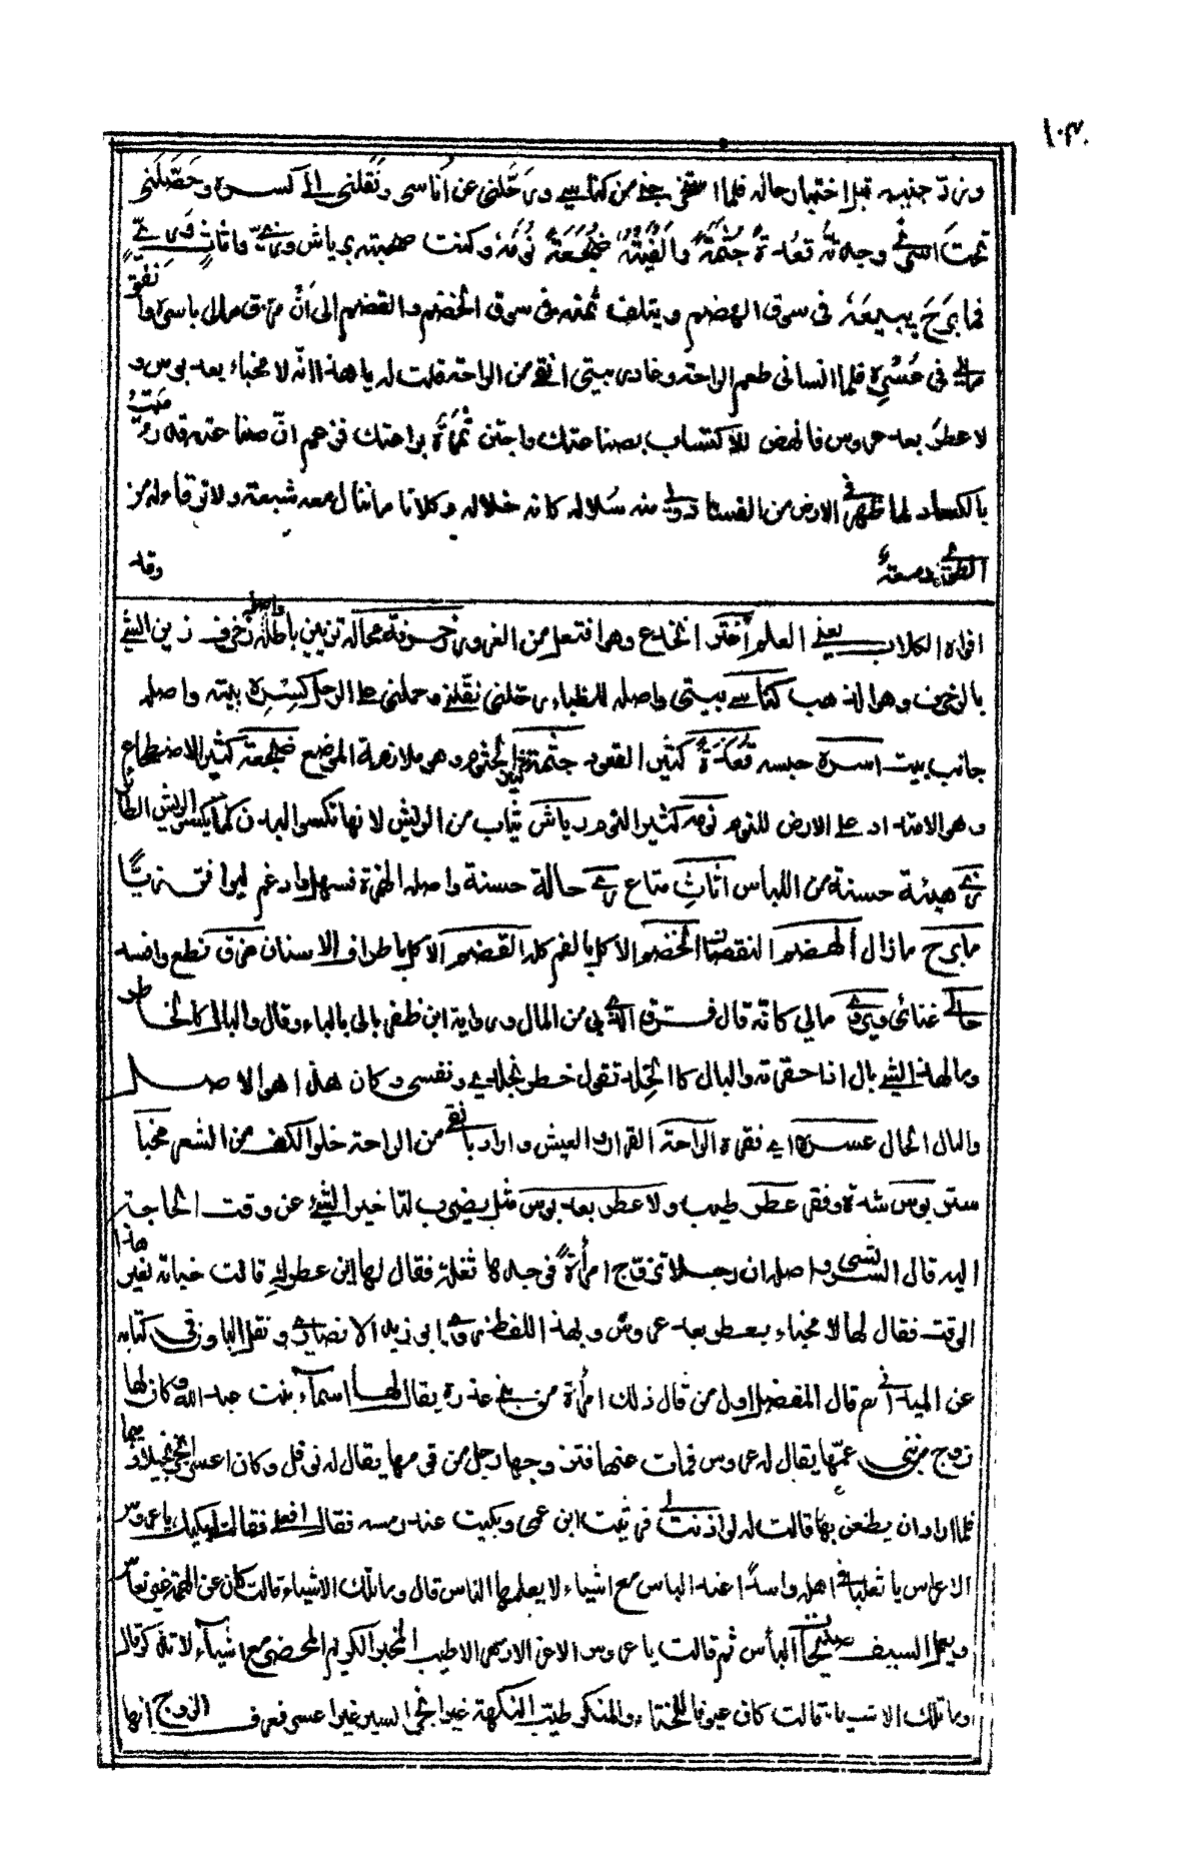 ١٠٣
وزوّجنيه قبل اختبار حاله فلما استخرجنے من كناسے ورحّلنى عن اُناسى ونقلنى الى كسره وحصّلنى
تحت اسره وجدته قُعَدَةً جُثَمَةً واَلفَيْتُهُ ضُجَعَةً نُوَمَةً وكنت صحبته برياش وزىّ واثاثٍ ورِىّ
فما بَرِحَ يبيعه فى سوق الهضم ويتلف ثمنه فى سوق الخضم والقضم الى اَنْ مزّق مالى باسره وانفق
مالے فى عُسْرِه فلما انسانى طعم الراحة وغادر بيتى انقى من الراحة قلت له يا هذا انّه لا مخباء بعد بوس و
لا عطر بعد عروس فانهض للاكتساب بصناعتك واجتن ثمرة براعتك فزعم انّ صناعته قد رميت
بالكساد لما ظهر فى الارض من الفساد ولى منه سُلاله كانه خلاله وكلانا ما ينال معه شبعة ولا ترقاء له من
الطوى دمعة
وقد
افواه الكلاب يعنے العلم اُغتر انخدع وهو افتعل من الغرور زخرفة محاله تزيين باطله واصله زخرف زين الشئ
بالزخرف وهو الذهب كناسے بيتى واصله للظباء رحّلنى نقّلنے وحملنى على الرحل كِسْرِه بيته واصله
جانب بيت اسره حبسه قُعَدَةً كثير القعود جثمة كثير الجثوم وهو ملازمة الموضع ضجعة كثير الاضطجاع
وهو الامتداد على الارض للنوم نومه كثير النوم رياش ثياب من الريش لانها تكسو البدن كما يكسو الريش الطائر
زے هيئة حسنة من اللباس اثاث متاع رے حالة حسنة واصله الهمزة فسهل وادغم ليوافق زيًّا
مابرح مازال الهضم النقصان الخضم الاكل بالفم كله القضم الاكل باطراف الاسنان مزق قطع وافسد
حالے غنائى ويروى مالي كانّه قال فسترق الذى بى من المال ورواية ابن ظفر بالى بالباء وقال والبال كالخاطر
وما لهذا الشئ بال اذا حقرته والبال كالخلد تقول خطر بخلدى ونفسى وكان هذا هو الاصل
والبال الحال عسره اى فقره الراحة القرار والعيش واراد بانقى من الراحة خلو الكف من الشعر مخبأ
ستر بوس شدة وفقر عطر طيب ولا عطر بعد بوس مثل يضرب لتاخير الشئ عن وقت الحاجة
اليه قال واصله ان رجلا تزوّج امرأة فوجدها تفلة فقال لها اين عطرك قالت خباته لغير هذا
الوقت فقال لها لا مخباء بعطر بعد عروس وبهذا اللفظ رواه ابو زيد الانصارى ونقل الباوزى كتابه
عن الميدانى ثم قال المفضل اول من قال ذلك امرأة من بنے عذرة يقال لها اسماء بنت عبد الله وكان لها
زوج من بنى عمّها يقال له عروس فمات عنها فتزوجها رجل من قومها يقال له نوفل وكان اعسر ابخر بخيلا دميما
فلما اراد ان يظعن بها قالت له لو اذنت لى فرثيت ابن عمى وبكيت عند رمسه فقال افعلى فقالت ابكيك يا عروس
الاعراس يا ثعلبا فى اهله واسدًا عند الباس مع اشياء لا يعلمها الناس قال وما تلك الاشياء قالت كان عن الهمة غير نعاس
ويعمل السيف صبيحات البأس ثم قالت يا عروس الاغر الازهر الاطيب الخير الكريم المحضر مع اشياء لا تذكر قال
وما تلك الاشياء قالت كان عيوفا للخناء والمنكر طيب النكهة غير ابخر ايسر غير اعسر فعرف الزوج انها